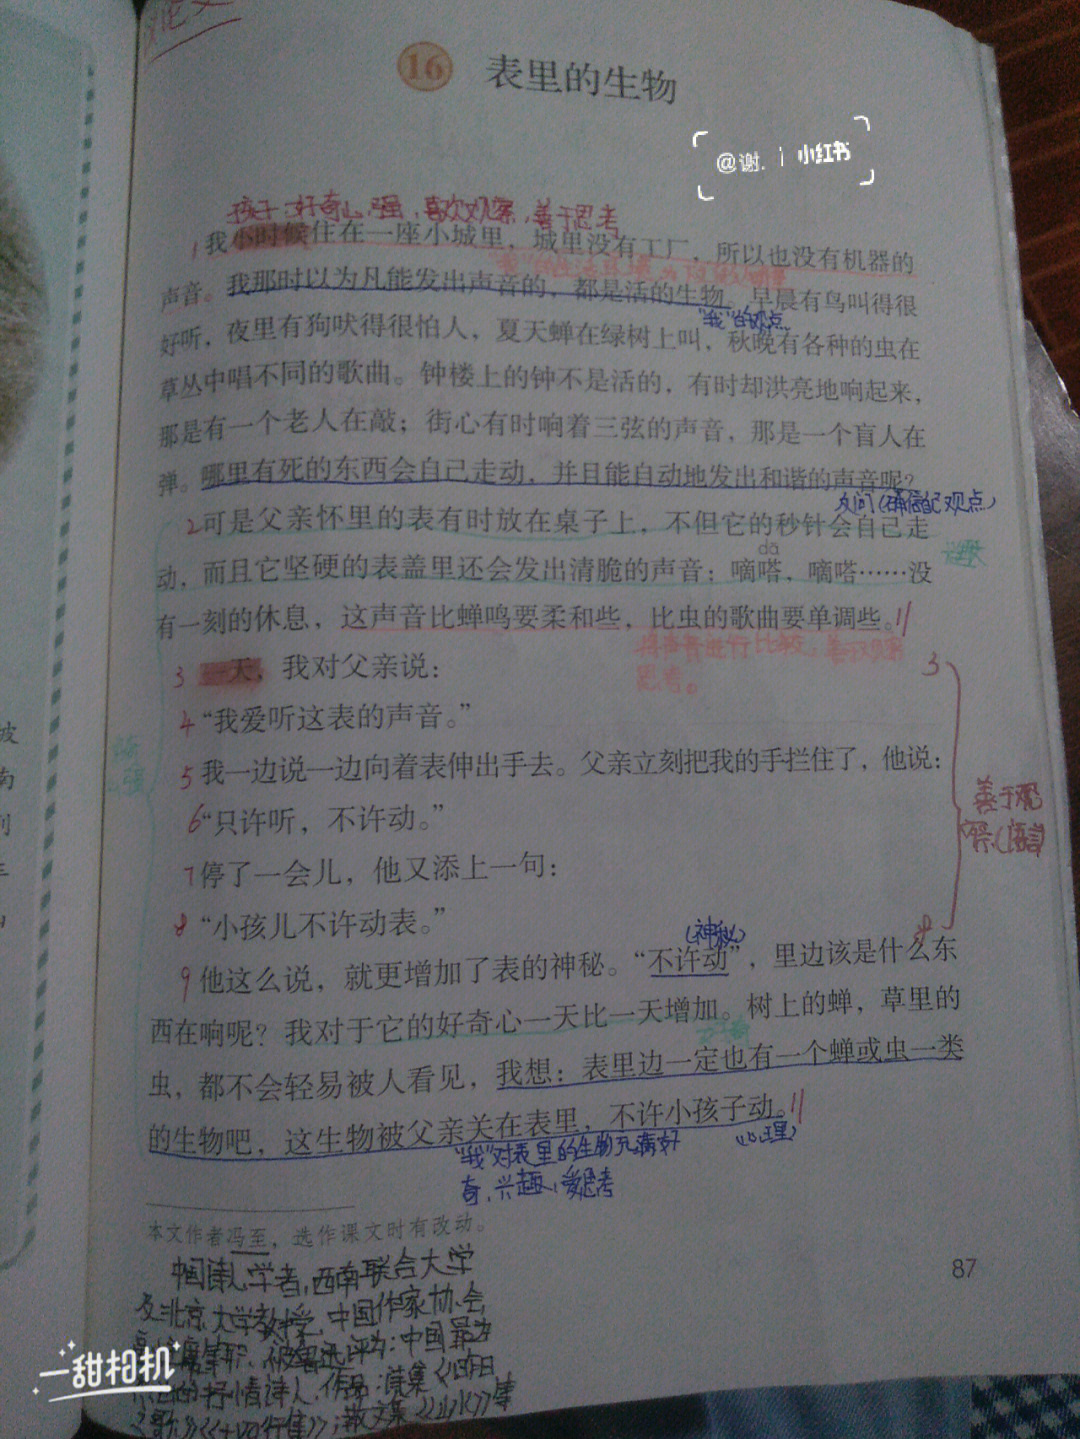 16 表里的生物
@谢. i 小红书
孩子:好奇心强,喜欢观察,善于思考
1我小时候住在一座小城里，城里没有工厂，所以也没有机器的
声音。我那时以为凡能发出声音的，都是活的生物。早晨有鸟叫得很
"我"的观点
好听，夜里有狗吠得很怕人，夏天蝉在绿树上叫，秋晚有各种的虫在
草丛中唱不同的歌曲。钟楼上的钟不是活的，有时却洪亮地响起来，
那是有一个老人在敲；街心有时响着三弦的声音，那是一个盲人在
弹。哪里有死的东西会自己走动，并且能自动地发出和谐的声音呢？
反问(确信自己观点)
2可是父亲怀里的表有时放在桌子上，不但它的秒针会自己走
dā
动，而且它坚硬的表盖里还会发出清脆的声音：嘀嗒，嘀嗒……没
有一刻的休息，这声音比蝉鸣要柔和些，比虫的歌曲要单调些。
将声音进行比较,喜欢观察
思考。
3 一天，我对父亲说：
3
4“我爱听这表的声音。”
5我一边说一边向着表伸出手去。父亲立刻把我的手拦住了，他说：
善于观
察(语言)
6“只许听，不许动。”
7停了一会儿，他又添上一句：
8“小孩儿不许动表。”
8
(神秘)
9他这么说，就更增加了表的神秘。“不许动”，里边该是什么东
西在响呢？我对于它的好奇心一天比一天增加。树上的蝉，草里的
虫，都不会轻易被人看见，我想：表里边一定也有一个蝉或虫一类
的生物吧，这生物被父亲关在表里，不许小孩子动。
(心理)
"我"对表里的生物充满好
奇,兴趣,爱思考
本文作者冯至，选作课文时有改动。
87
中国诗人,学者,西南联合大学
及北京大学教授,中国作家协会
被鲁迅评为:中国最为
的抒情诗人.作品:诗集《昨日
之歌》《十四行集》;散文集《山水》等
一甜相机